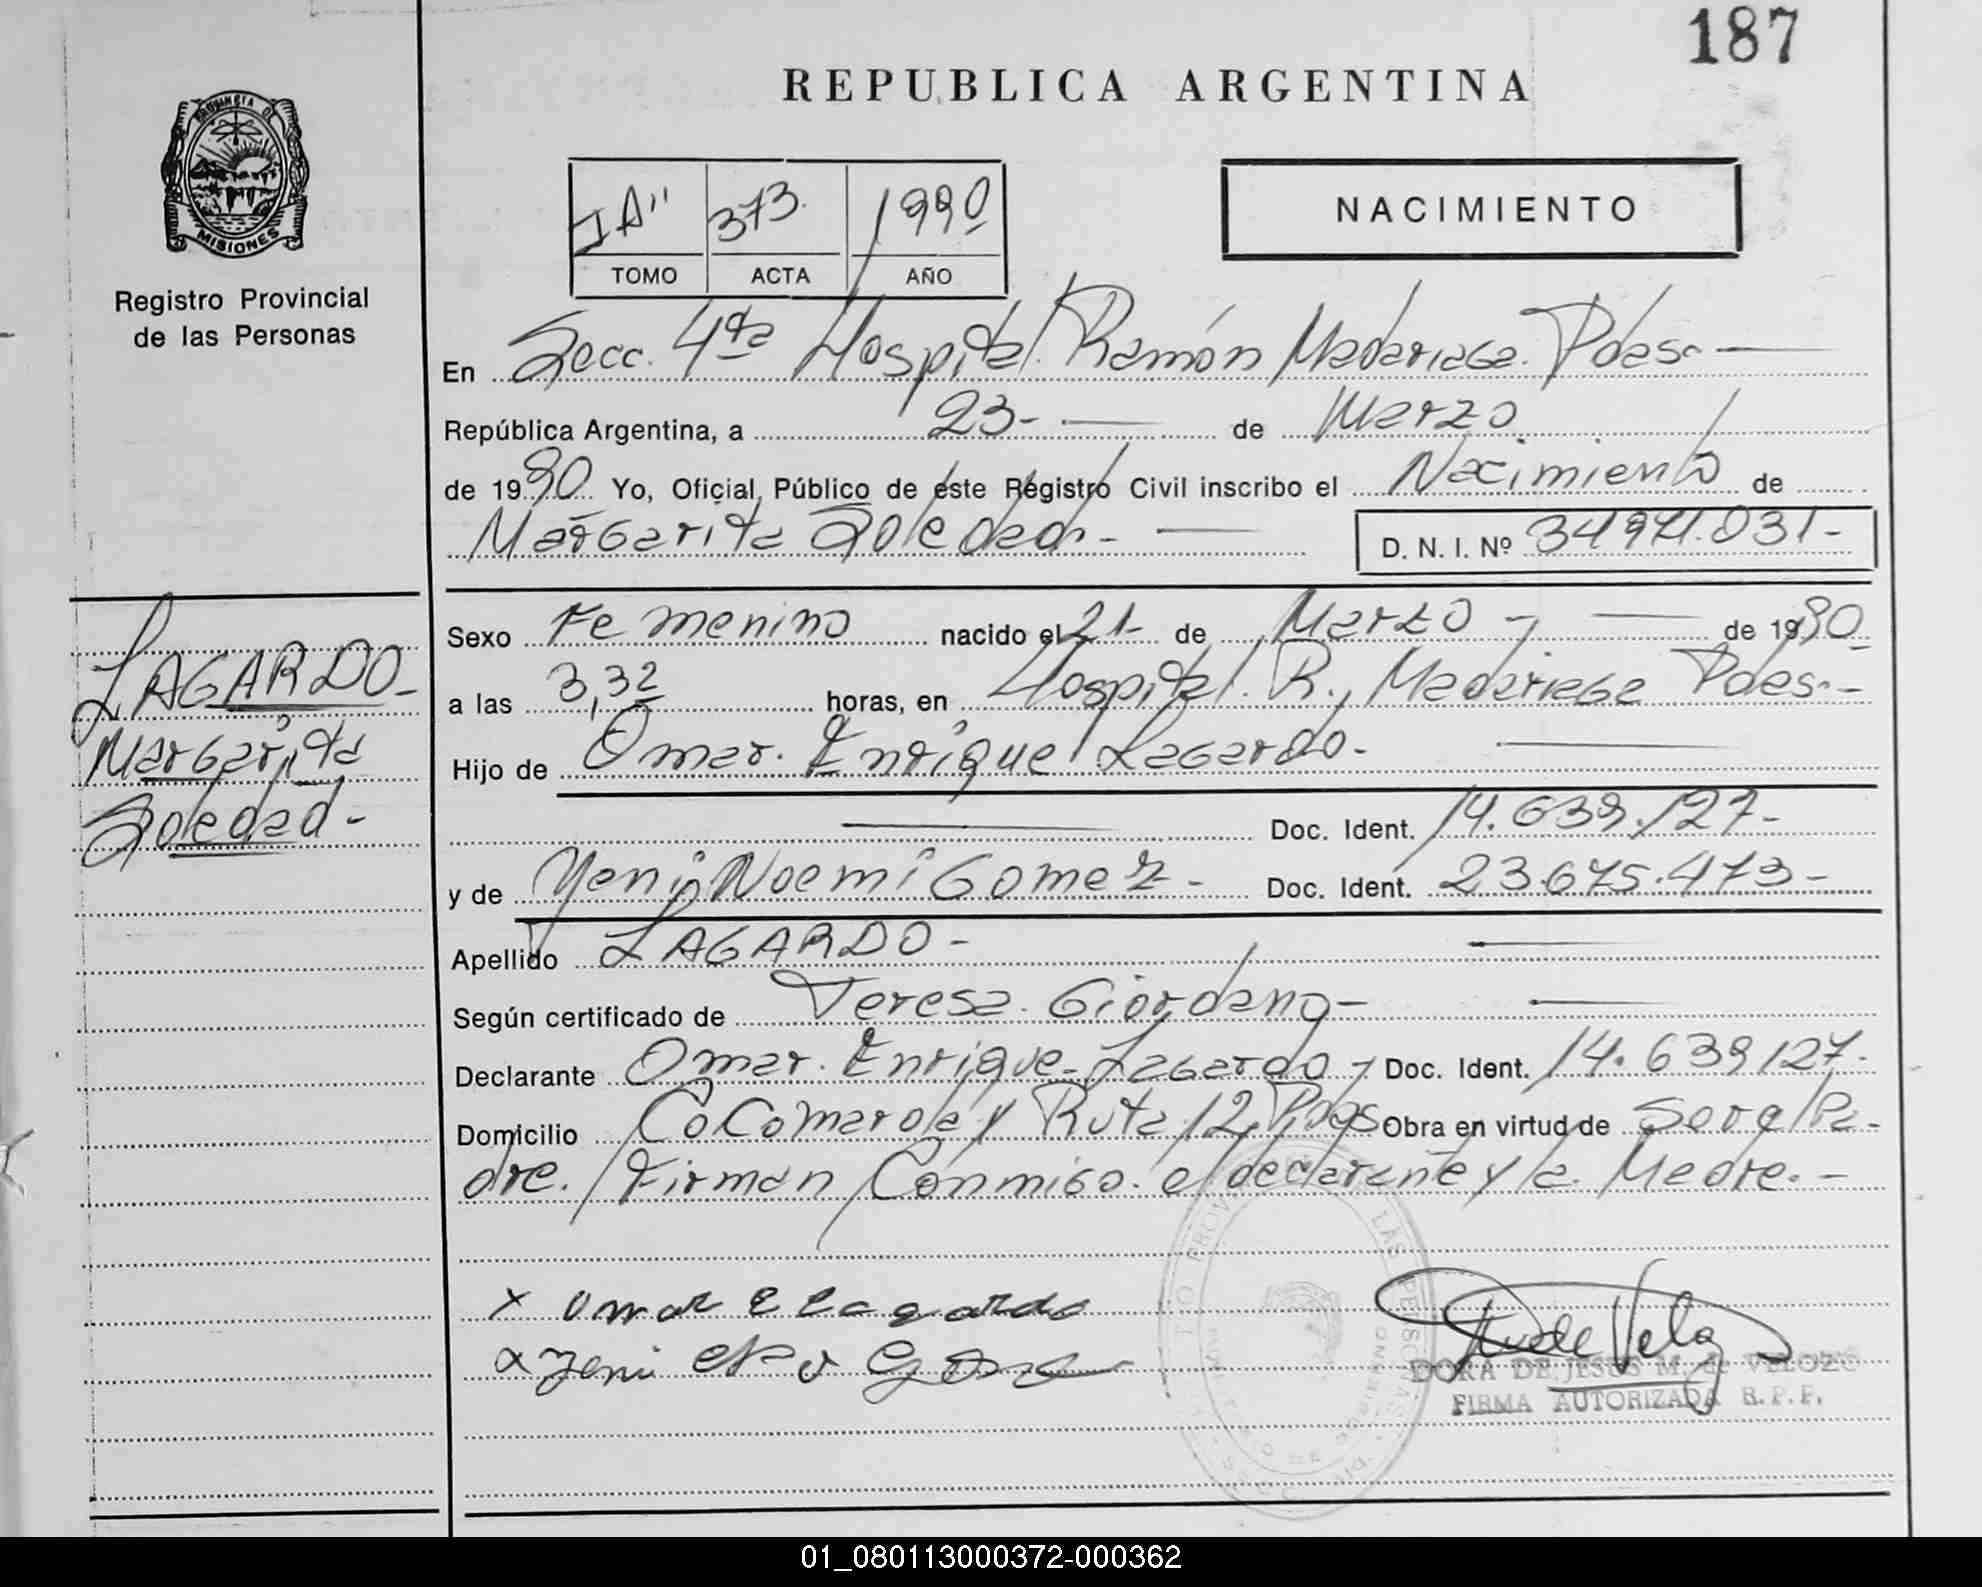 187
REPUBLICA ARGENTINA
PROVINCIA D
MISIONES
Registro Provincial
de las Personas
"A" 373. 1990
TOMO ACTA AÑO
NACIMIENTO
En Secc. 4ta Hospital Ramón Madariaga. Pdas. —
República Argentina, a 23- — de Marzo
de 1990 Yo, Oficial Público de este Registro Civil inscribo el Nacimiento de
Margarita Soledad. - — D. N. I. Nº 34974.031-
LAGARDO-
Margarita
Soledad-
Sexo Femenino nacido el 21- de Marzo - — de 1990
a las 3,32 horas, en Hospital. R. Madariaga Pdas. -
Hijo de Omar. Enrique Lagardo- —
— Doc. Ident. 14.639.127-
y de Yeni Noemí Gomez- Doc. Ident. 23.675.473-
Apellido LAGARDO- —
Según certificado de Teresa. Giordano- —
Declarante Omar. Enrique Lagardo- Doc. Ident. 14.639127-
Domicilio CoComarola y Ruta 12, Pdas Obra en virtud de Ser el Pa-
dre. Firman Conmigo. el declarante y la Madre. -
x omar e lagardo
x yeni
DORA DE JESUS M. de VELOZO
FIRMA AUTORIZADA R.P.P.
01_080113000372-000362